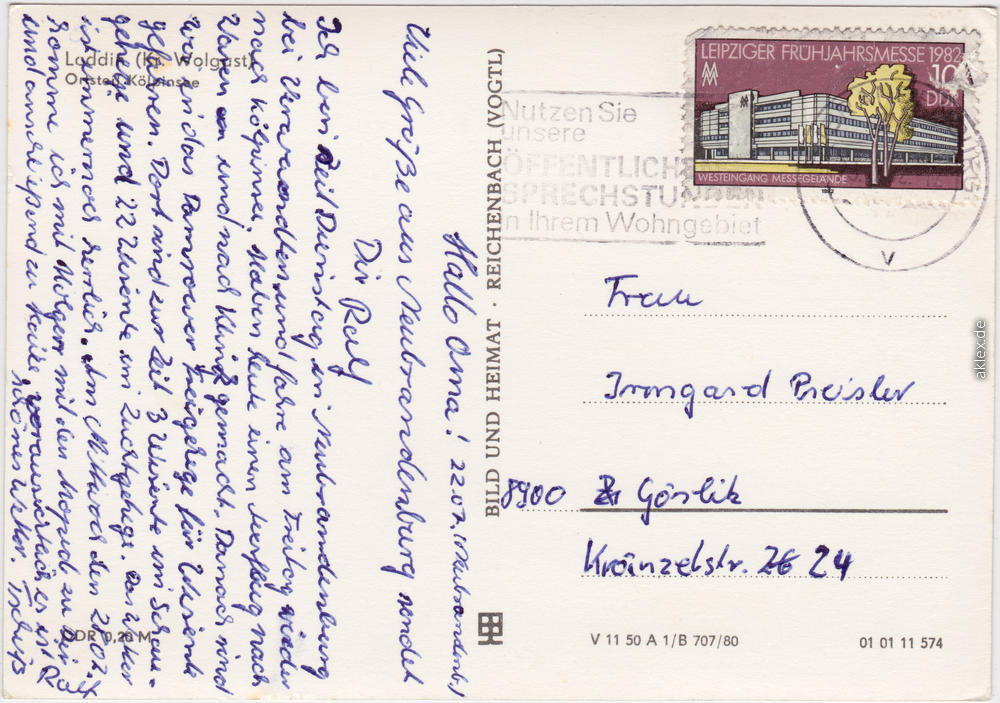 Loddin (Kr. Wolgast)
Ortsteil Kölpinsee
Hallo Oma! 22.07. (Neubrandenb.)
Viele Grüße aus Neubrandenburg sendet
Dir Ralf
Ich bin seit Dienstag in Neubrandenburg
bei Verwandten und fahre am Freitag wieder
nach Kölpinsee. Haben heute einen Ausflug nach
Waren und nach Klink gemacht. Danach sind
wir in das Damerower Freigehege für Wisente
gefahren. Dort sind zur Zeit 3 Wisente im Schau-
gehege und 22 Wisente im Zuchtgehege. Das Wetter
ist immer noch herrlich. Am Mittwoch den 28.07.
komme ich mit Holger mit dem Moped zu Dir
und anschließend zu Hause, vorausgesetzt es ist
schönes Wetter. Tschüß
DDR 0,20 M
BILD UND HEIMAT · REICHENBACH (VOGTL)
Nutzen Sie
unsere
ÖFFENTLICHEN
SPRECHSTUNDEN
in Ihrem Wohngebiet
LEIPZIGER FRÜHJAHRSMESSE 1982
10
DDR
WESTEINGANG MESSEGELÄNDE
V
Frau
Irmgard Preisler
8900 Görlitz
Kränzelstr. 24
V 11 50 A 1/B 707/80
01 01 11 574
aklex.de